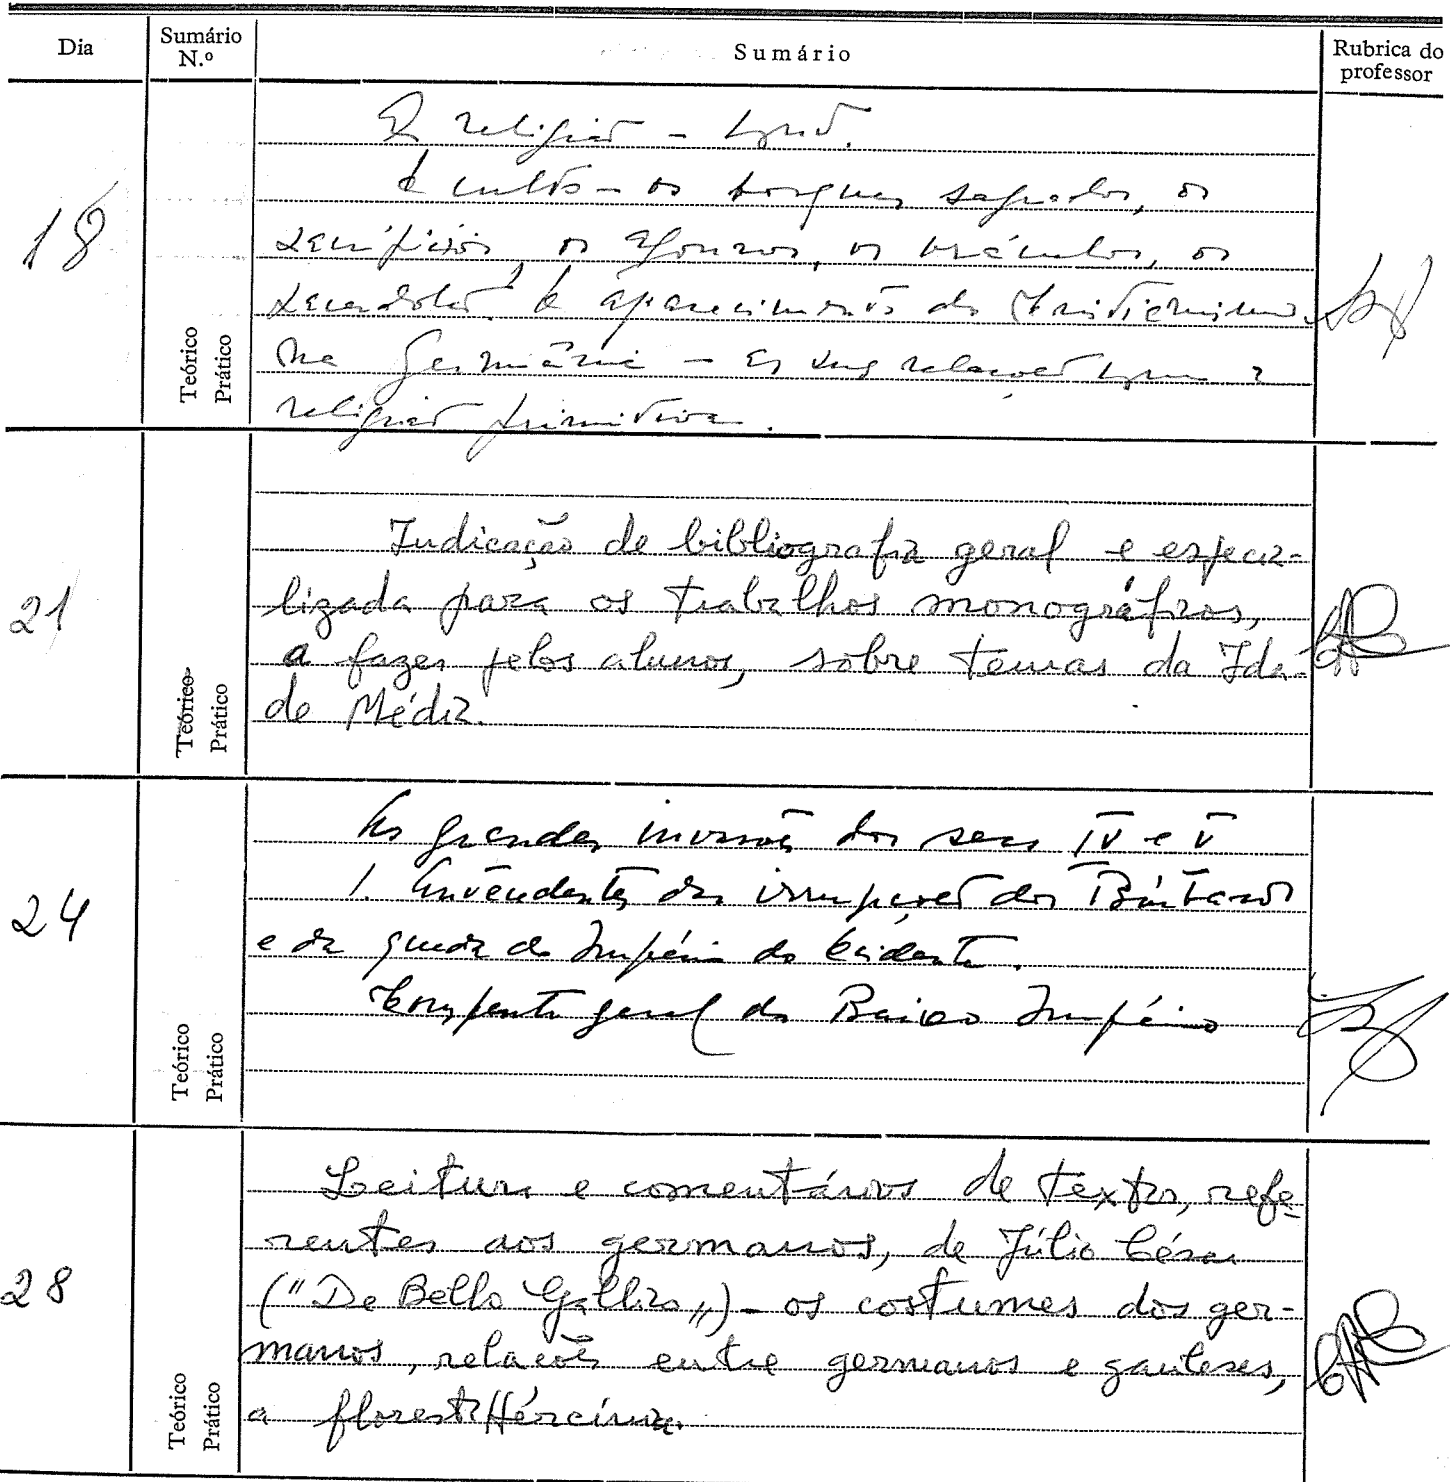 Dia
Sumário
N.º
Sumário
Rubrica do
professor
18
Teórico
Prático
A religião
O culto - os bosques sagrados, os
sacrifícios, os agouros, os oráculos, os
sacerdotes. O aparecimento do Cristianismo
na Germânia - as suas relações com a
religião primitiva.
21
Teórico
Prático
Indicação de bibliografia geral e especia-
lizada para os trabalhos monográficos,
a fazer pelos alunos, sobre temas da Ida-
de Média.
24
Teórico
Prático
As grandes invasões dos secs IV e V
1. Antecedentes das irrupções dos Bárbaros
e da queda do Império do Ocidente.
geral do Baixo Império
28
Teórico
Prático
Leitura e comentários de textos, refe-
rentes aos germanos, de Júlio César
("De Bello Gallico") - os costumes dos ger-
manos, relações entre germanos e gauleses,
a floresta Hércínia.